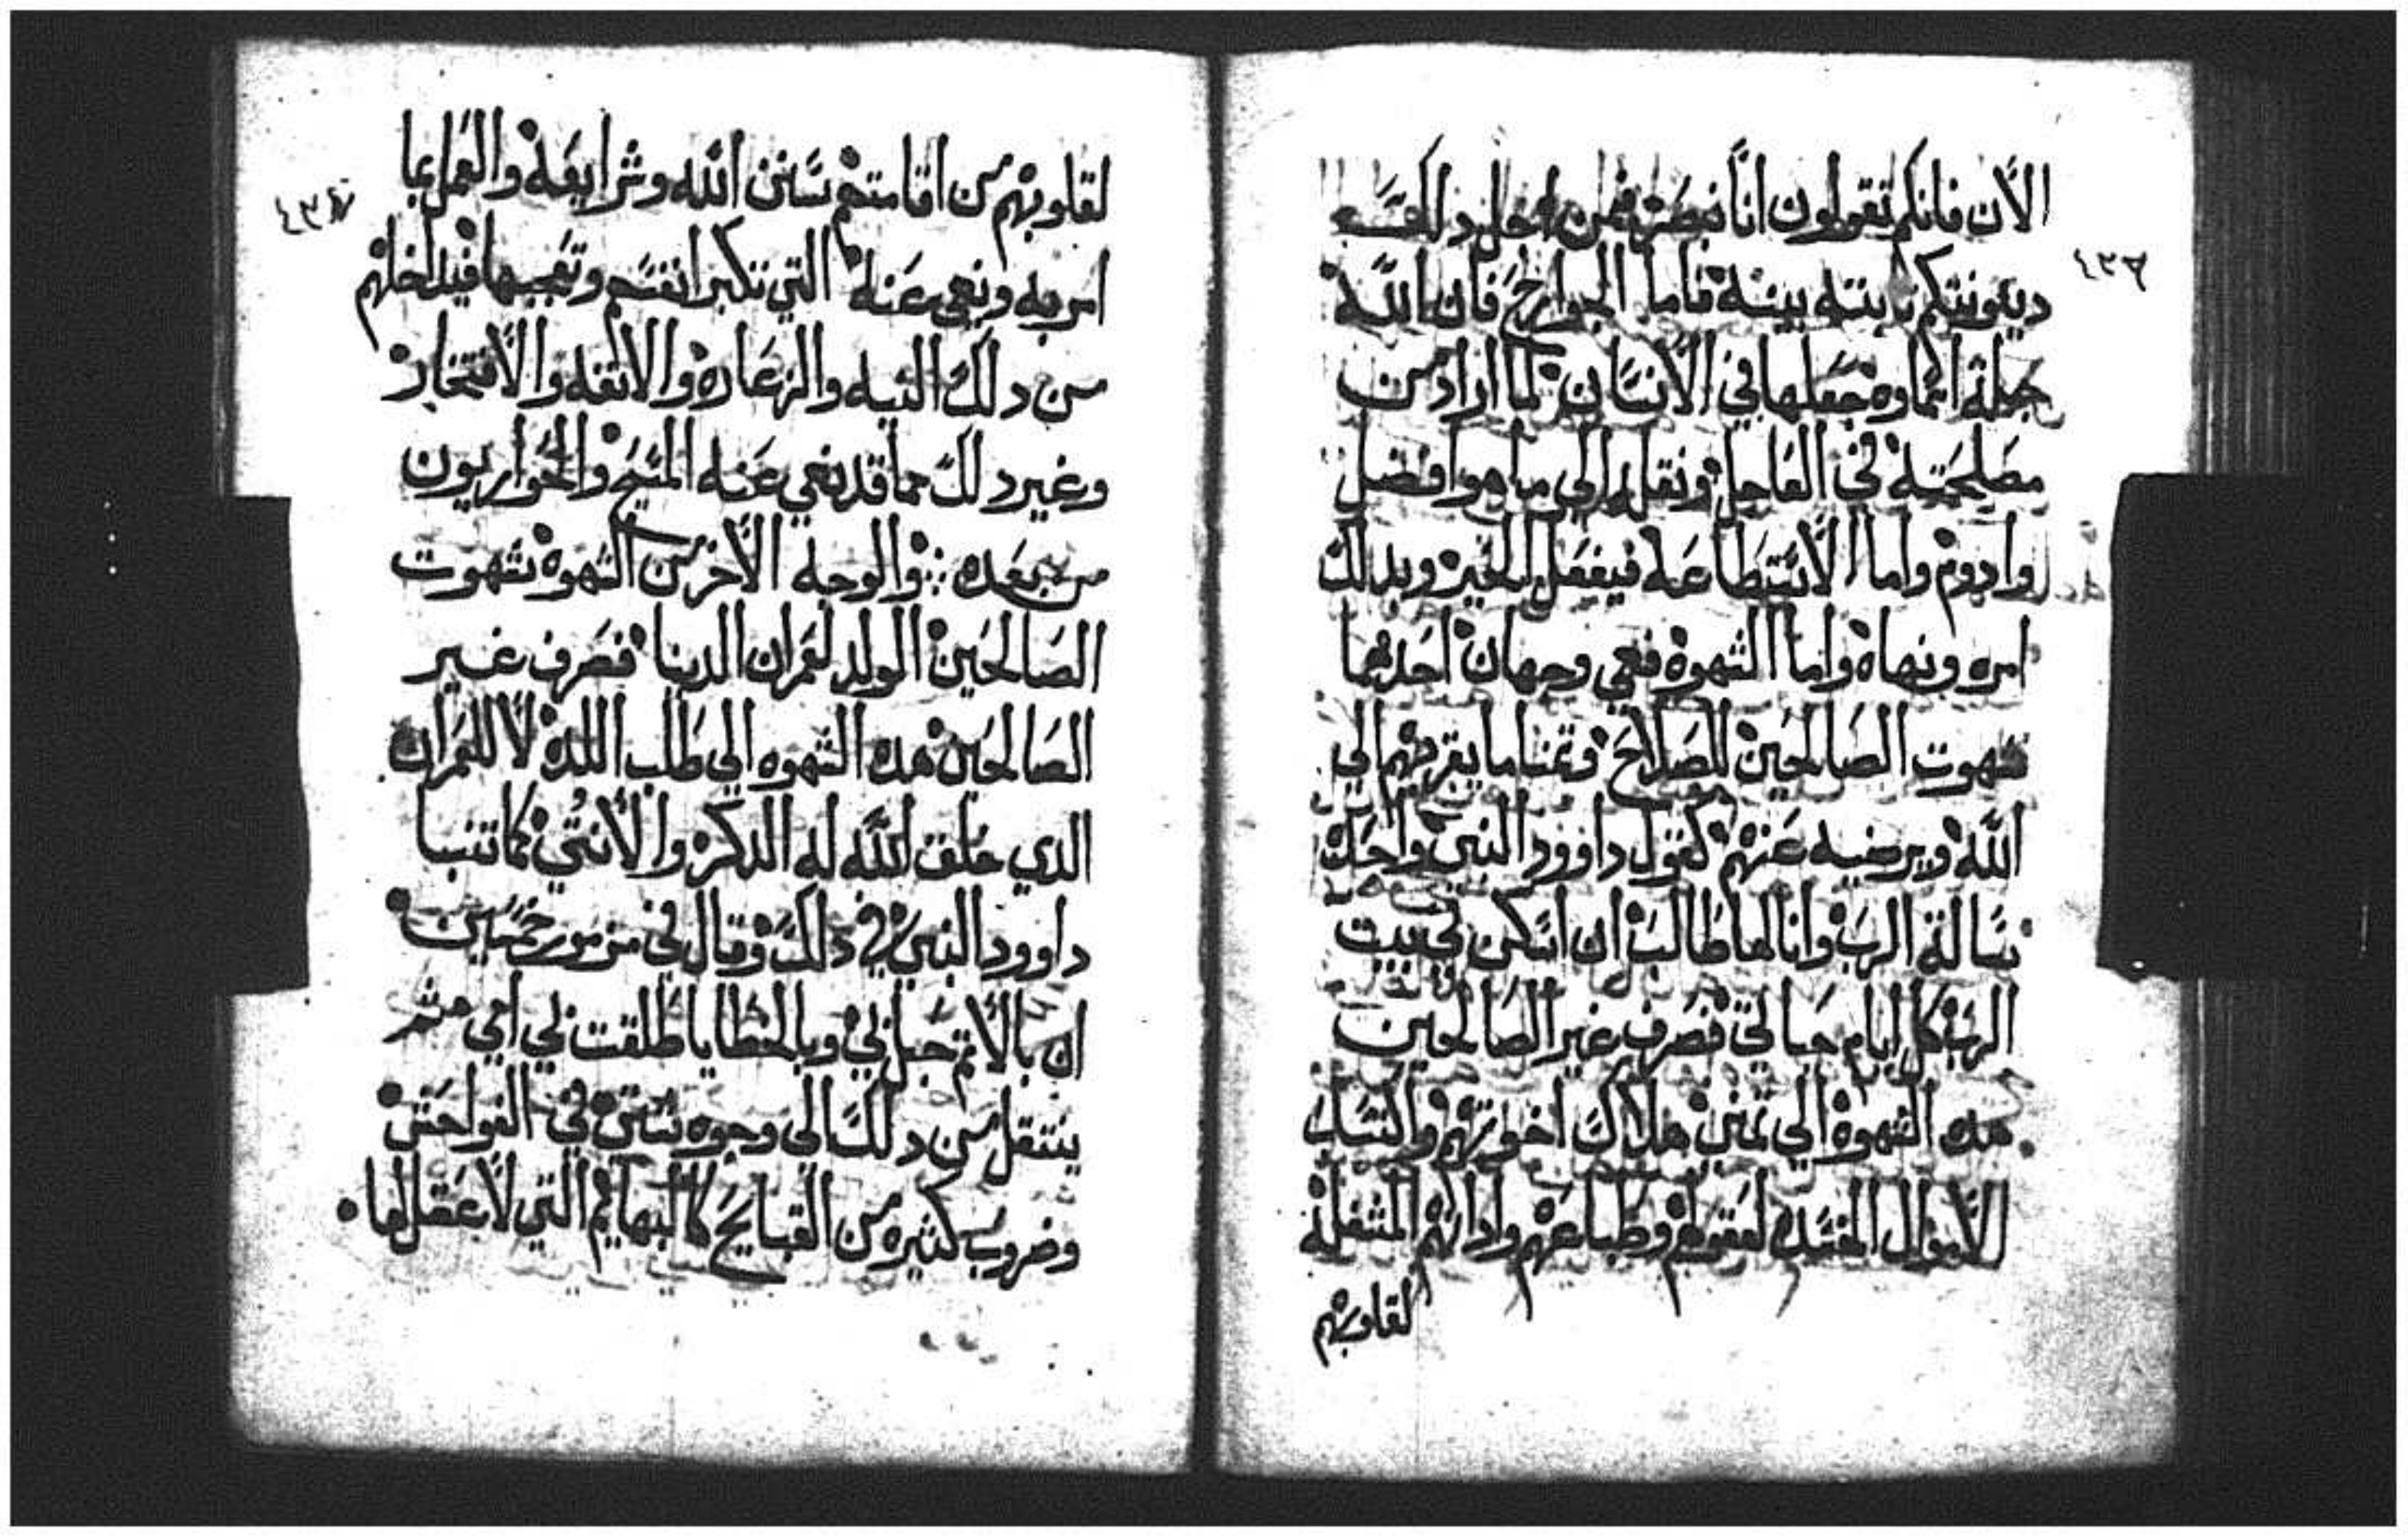 ٤٣٦
الآن فانكم تقولون انا نبصر فمن اجل ذلك
دينونتكم ثابته بينة فاما الجوارح فان الله
جملة اسماوه جعلها في الانسان لما اراد من
مصلحته في العاجل ونقله الي ما هو افضل
وادوم واما الاستطاعه فيفعل الخير وبدلك
امره ونهاه واما الشهوة فهي وجهان احدهما
شهوت الصالحين للصلاح وتمنا ما يقربهم الي
الله ويرضيه عنهم كقول داوود النبي واحدة
سالة الرب وانا لها طالب ان اسكن في بيت
الرب كل ايام حياتي فصرف غير الصالحين
هده الشهوة الي تمني هلاك اخوتهم واكتساب
الاموال المفسدة لعقولهم وطباعهم واداتهم المثقلة
لقلوبهم
٤٣٧
لقلوبهم من اقامتهم سنن الله وشرايعه والعمل بما
امر به ونهي عنه التي تكبر انفسهم وتعجبها فيداخلهم
من دلك التيه والزعارة والانفه والافتخار
وغير دلك مما قد نهي عنه المسيح والحواريون
من بعده والوجه الاخر من الشهوة شهوت
الصالحين الولد لعمران الدنيا فصرف غير
الصالحين هده الشهوه الي طلب اللدة لا للعمران
الدي خلق الله له الدكر والانثي كما تنبا
داوود النبي في دلك وقال في مزمور خمسين
ان بالاثم حبل بي وبالخطايا طلقت بي امي ثم
ينتقل من دلك الي وجوه شتي في الفواحش
وضروب كثيره من القبايح كالبهايم التي لا عقل لها